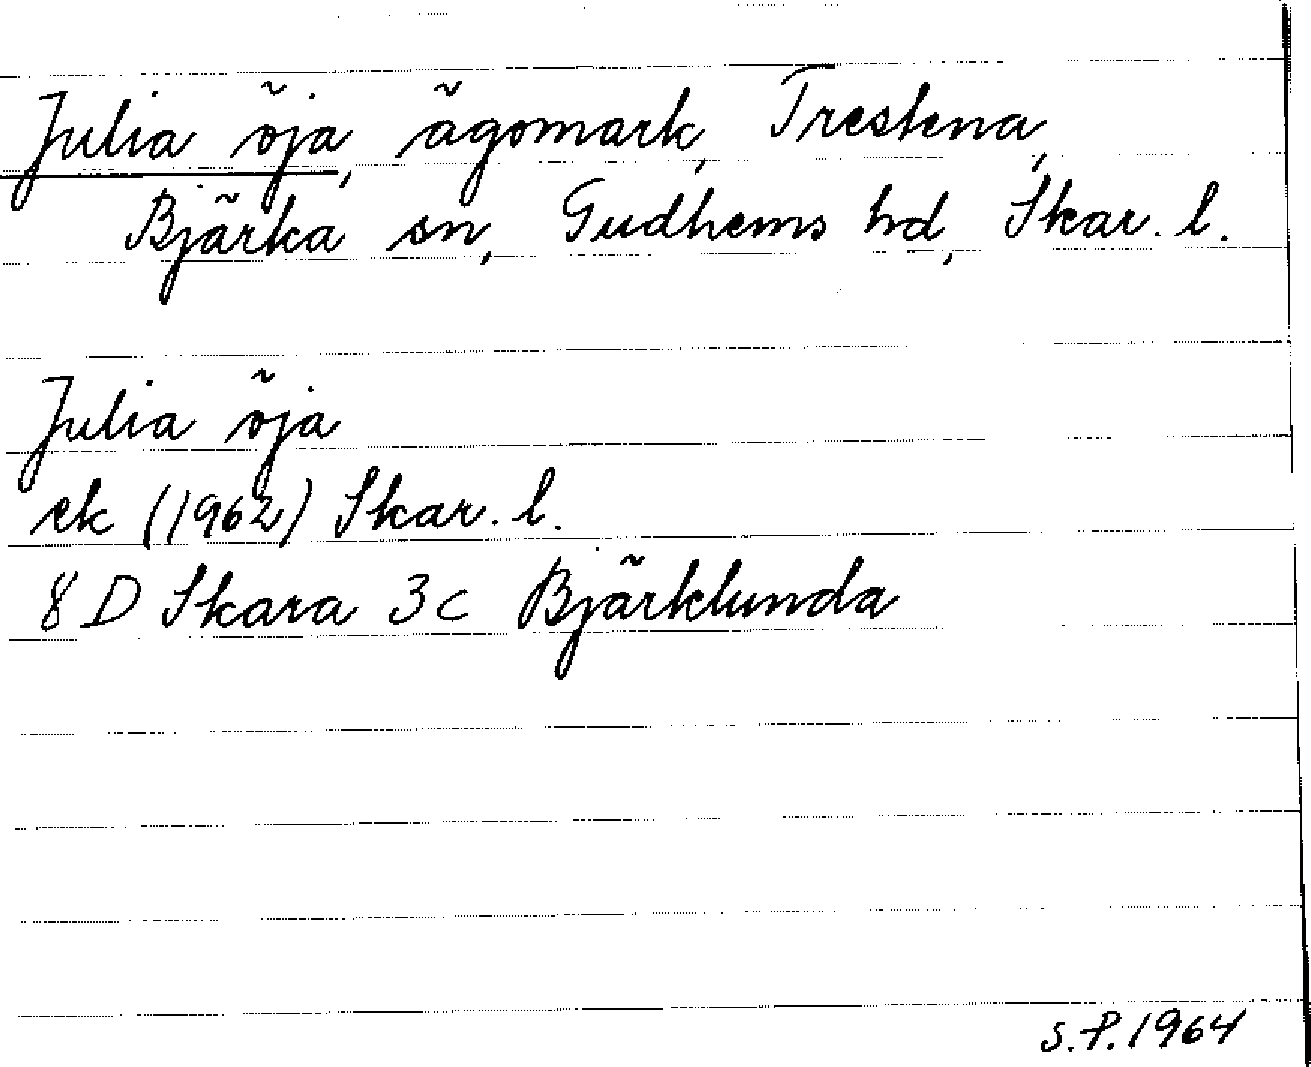 Julia öja, ägomark, Trestena,
Bjärka sn, Gudhems hd, Skar. l.
Julia öja
ek (1962) Skar. l.
8 D Skara 3c Bjärklunda
S.P. 1964